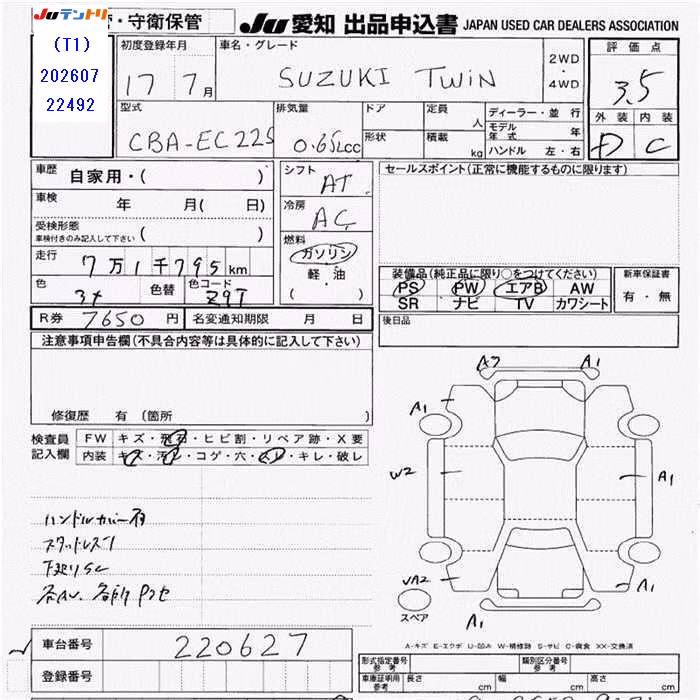 Juテントリ
・守衛保管
Ju 愛知 出品申込書 JAPAN USED CAR DEALERS ASSOCIATION
(T1)
202607
22492
初度登録年月
17 7月
車名・グレード
SUZUKI TWIN
2WD
・
4WD
評価点
3.5
型式
CBA-EC22S
排気量
0.65Lcc
ドア
形状
定員 人
積載 kg
ディーラー・並行
モデル年式 年
ハンドル 左・右
外装 内装
D C
車歴 自家用・( )
車検 年 月( 日)
受検形態
車検付きのみ記入して下さい ( )
走行 7万1千795km
色 色替 色コード Z9T
シフト AT
冷房 AC
燃料
ガソリン
軽・油
( )
セールスポイント(正常に機能するものに限ります)
装備品(純正品に限り○をつけてください)
PS PW エアB AW
SR ナビ TV カワシート
新車保証書
有・無
R券 7650円 名変通知期限 月 日
後日品
注意事項申告欄(不具合内容等は具体的に記入して下さい)
修復歴 有 (箇所 )
検査員
記入欄
FW キズ・飛石・ヒビ割・リペア跡・X要
内装 キズ・汚レ・コゲ・穴・スレ・キレ・破レ
ハンドルカバー有
スタッドレス
下廻りSC
A1
A1
A1
W2
A1
A1
A1
スペア
A-キズ E-エクボ U-凹み W-補修跡 S-サビ C-腐食 XX-交換済
車台番号 220627
登録番号
形式指定番号
参考
類別区分番号
参考
車庫証明用
参考
長さ cm 幅 cm 高さ cm